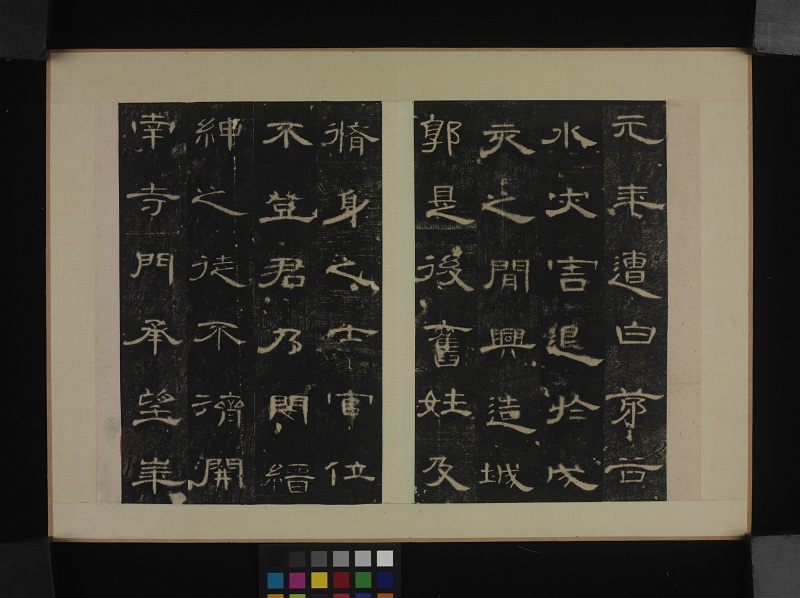 元年遭白茅谷
水灾害退於戌
亥之間興造城
郭是後舊姓及
脩身之士官位
不登君乃閔縉
紳之徒不濟開
南寺門承望華